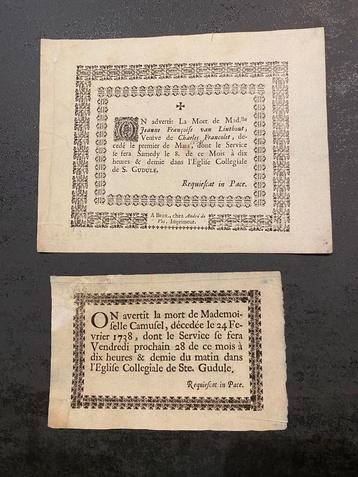 ✠
ON advertit La Mort de Mad.lle
Jeanne Françoise van Linthout,
Veuve de Charles Francolet, de-
cedé le premier de Mars, dont le Service
se fera Samedy le 8. de ce Mois à dix
heures & demie dans l'Eglise Collegiale
de S. GUDULE.
Requiescat in Pace.
A BRUX., chez André de
Vos, Imprimeur.
ON avertit la mort de Mademoi-
selle Camusel, décedée le 24 Fe-
vrier 1738, dont le Service se fera
Vendredi prochain 28 de ce mois à
dix heures & demie du matin dans
l'Eglise Collegiale de Ste. Gudule.
Requiescat in Pace.